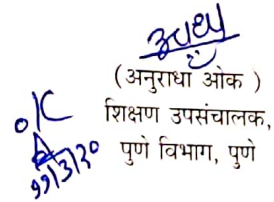 (अनुराधा ओक )
शिक्षण उपसंचालक,
पुणे विभाग, पुणे
o/c
११/३/२०